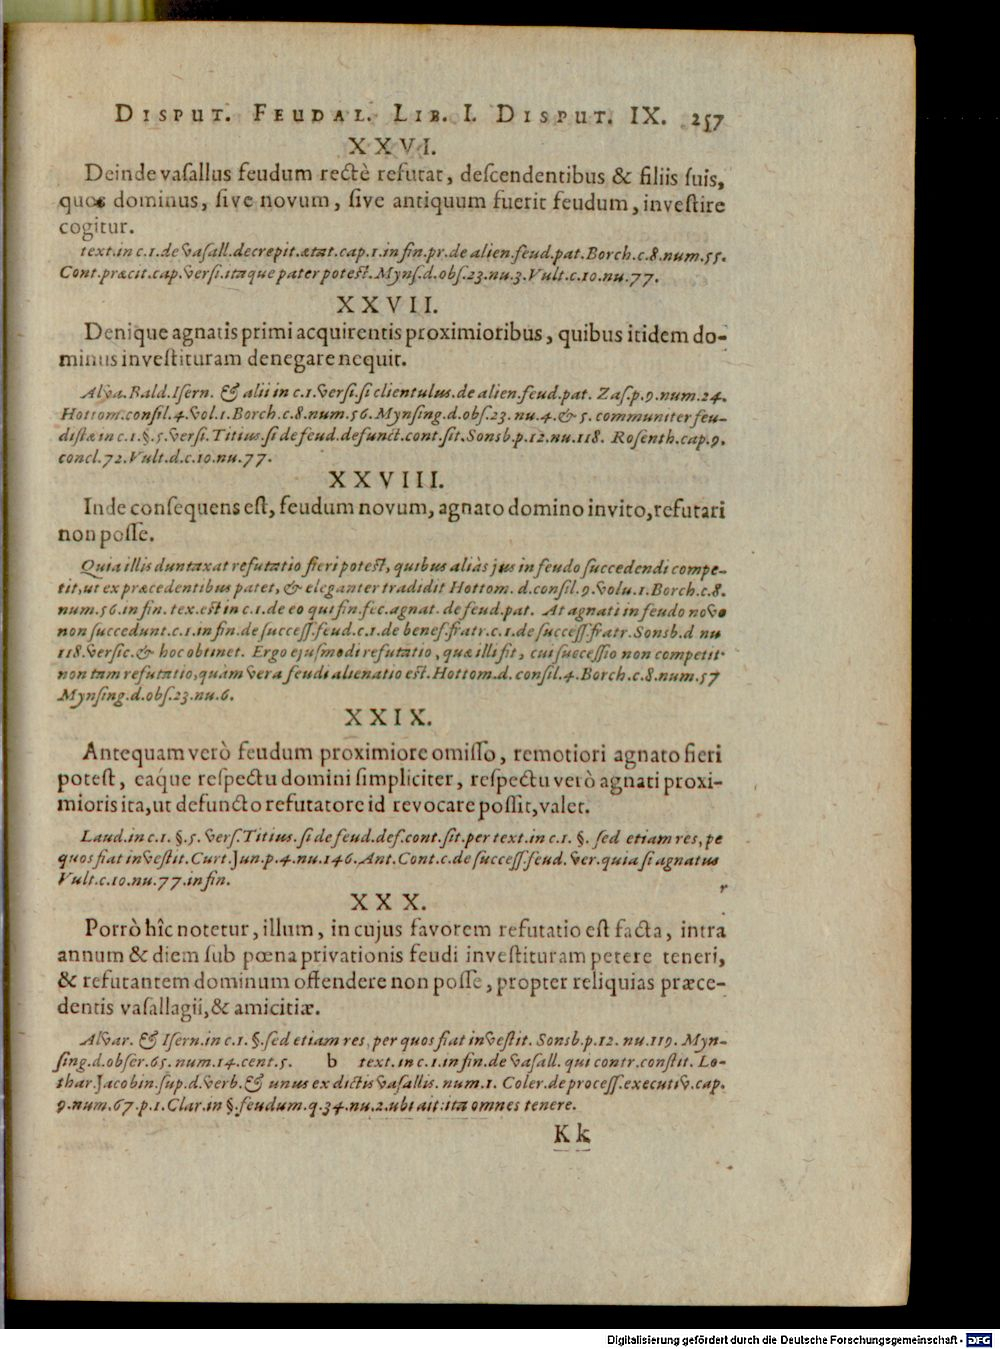 DISPUT. FEUDAL. LIB. I. DISPUT. IX. 257
XXVI.
Deinde vaſallus feudum rectè refutat, deſcendentibus & filiis ſuis,
quos dominus, ſive novum, ſive antiquum fuerit feudum, inveſtire
cogitur.
text. in c. 1. de vaſall. decrepit. ætat. cap. 1. in fin. pr. de alien. feud. pat. Borch. c. 8. num. 55.
Cont. præcit. cap. verſi. itaque pater poteſt. Mynſ. d. obſ. 23. nu. 3. Vult. c. 10. nu. 77.
XXVII.
Denique agnatis primi acquirentis proximioribus, quibus itidem do-
minus inveſtituram denegare nequit.
Alva. Bald. Iſern. & alii in c. 1. verſi. ſi clientulus. de alien. feud. pat. Zaſ. p. 9. num. 24.
Hottom. conſil. 4. vol. 1. Borch. c. 8. num. 56. Mynſing. d. obſ. 23. nu. 4. & 5. communiter feu-
diſtæ in c. 1. §. 5. verſi. Titius. ſi de feud. defunct. cont. ſit. Sonsb. p. 12. nu. 118. Roſenth. cap. 9.
concl. 72. Vult. d. c. 10. nu. 77.
XXVIII.
Inde conſequens eſt, feudum novum, agnato domino invito, refutari
non poſſe.
Quia illis duntaxat refutatio fieri poteſt, quibus aliàs jus in feudo ſuccedendi compe-
tit, ut ex præcedentibus patet, & eleganter tradidit Hottom. d. conſil. 9. volu. 1. Borch. c. 8.
num. 56. in fin. tex. eſt in c. 1. de eo qui fin. fec. agnat. de feud. pat. At agnati in feudo novo
non ſuccedunt. c. 1. in fin. de ſucceſſ. feud. c. 1. de benef. fratr. c. 1. de ſucceſſ. fratr. Sonsb. d nu
118. verſic. & hoc obtinet. Ergo ejuſmodi refutatio, quæ illi fit, cui ſucceſſio non competit.
non tam refutatio, quàm vera feudi alienatio eſt. Hottom. d. conſil. 4. Borch. c. 8. num. 57
Mynſing. d. obſ. 23. nu. 6.
XXIX.
Antequam verò feudum proximiore omiſſo, remotiori agnato fieri
poteſt, eaque reſpectu domini ſimpliciter, reſpectu verò agnati proxi-
mioris ita, ut defuncto refutatore id revocare poſſit, valet.
Laud. in c. 1. §. 5. verſ. Titius. ſi de feud. def. cont. ſit. per text. in c. 1. §. ſed etiam res, pe
quos fiat inveſtit. Curt. Jun. p. 4. nu. 146. Ant. Cont. c. de ſucceſſ. feud. ver. quia ſi agnatus
Vult. c. 10. nu. 77. in fin. r
XXX.
Porrò hîc notetur, illum, in cujus favorem refutatio eſt facta, intra
annum & diem ſub pœna privationis feudi inveſtituram petere teneri,
& refutantem dominum offendere non poſſe, propter reliquias præce-
dentis vaſallagii, & amicitiæ.
Alvar. & Iſern. in c. 1. §. ſed etiam res, per quos fiat inveſtit. Sonsb. p. 12. nu. 119. Myn-
ſing. d. obſer. 65. num. 14. cent. 5. b text. in c. 1. in fin. de vaſall. qui contr. conſtit. Lo-
thar. Jacobin. ſup. d. verb. & unus ex dictis vaſallis. num. 1. Coler. de proceſſ. executiv. cap.
9. num. 67. p. 1. Clar. in §. feudum. q. 34. nu. 2. ubi ait: ita omnes tenere.
Kk
Digitalisierung gefördert durch die Deutsche Forschungsgemeinschaft - DFG